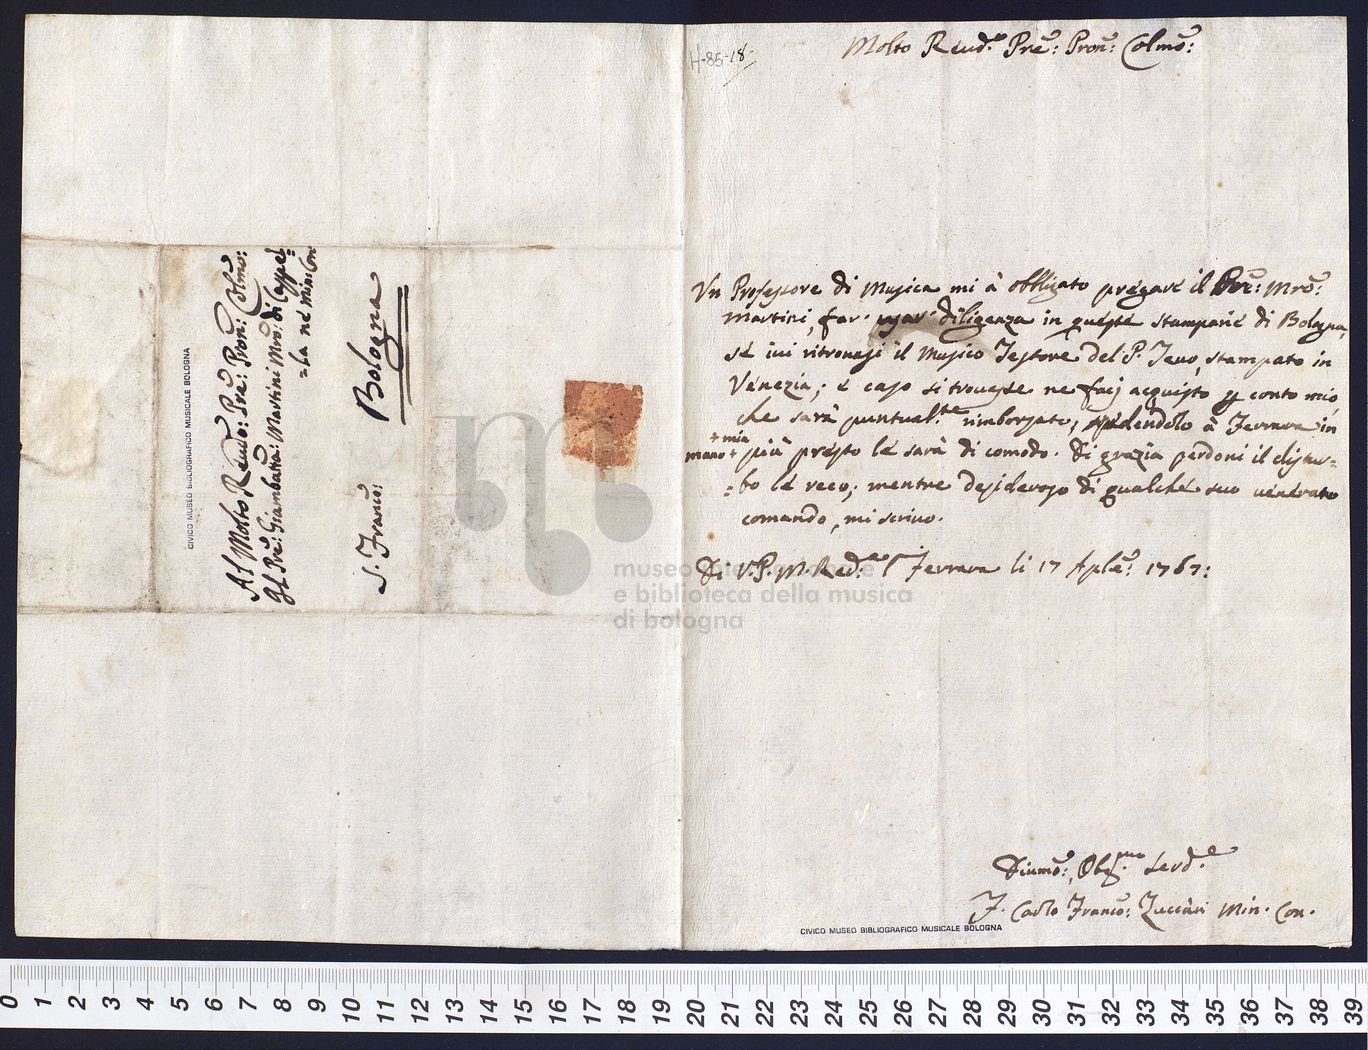 Al Molto Reudo: Pre: Pron: Colmo:
Il Pre: Giambatta: Martini Mro: di Cappel=
=la né Min: Con
Bologna
S. Franco:
CIVICO MUSEO BIBLIOGRAFICO MUSICALE BOLOGNA
H-85-18-
Molto Reud.e Pre: Pron: Colmo:
Un Professore di Musica mi à obbligato pregare il Pre: Mro:
Martini, far usar diligenza in queste stamparie di Bologna,
se ivi ritrovasi il Musico Testore del P. Tevo, stampato in
Venezia; è caso si trovasse ne facj acquisto p conto mio,
che sarà puntual.te rimborsato; spedendolo à Ferrara in
+ mia
mano + più presto le sarà di comodo. Di grazia perdoni il distur=
=bo le reco; mentre desideroso di qualche suo venerato
comando, mi scrivo.
Di V.P.M.Red.a Ferrara li 17 Aple: 1767:
Diumo: Obg.mo Serd.e
F. Carlo Franco: Zuccari Min. Con.
CIVICO MUSEO BIBLIOGRAFICO MUSICALE BOLOGNA
museo internazionale
e biblioteca della musica
di bologna
0 1 2 3 4 5 6 7 8 9 10 11 12 13 14 15 16 17 18 19 20 21 22 23 24 25 26 27 28 29 30 31 32 33 34 35 36 37 38 39